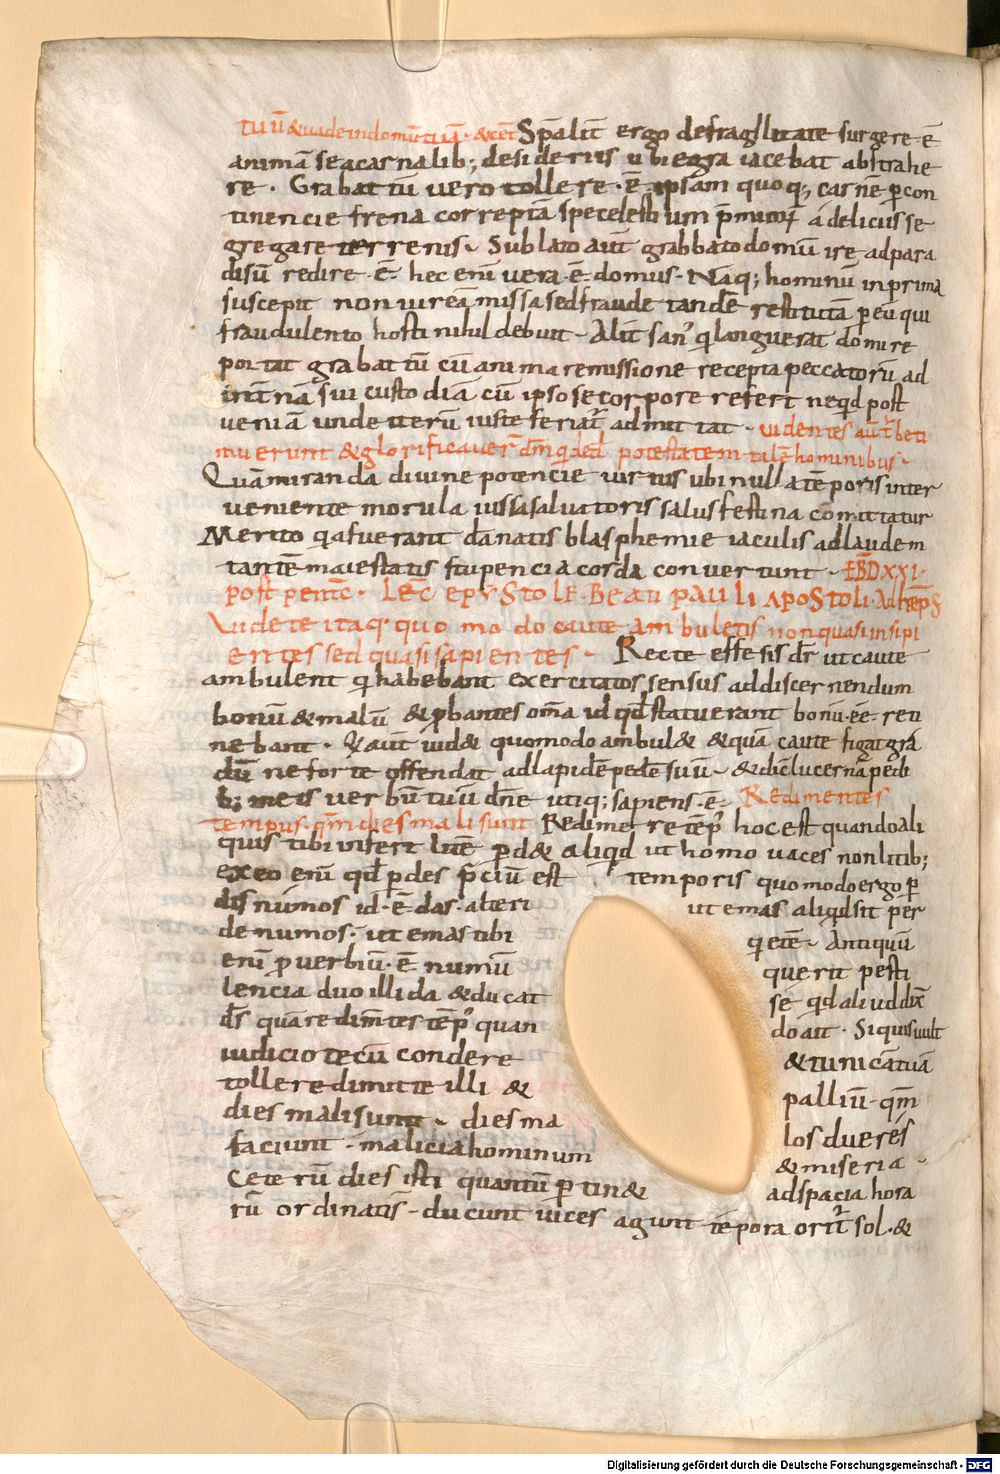 tuū & uade in domū tuā · & cet̄ Sp̄alit̄ ergo de fragllitate surgere · ē
animā se a carnalib; desideriis ubi egra iacebat abstrahe
re · Grabattū vero tollere · ē ipsam quoq; carnē p con
tinencie frena correptā spe celestium p̄miorꝝ a deliciis se
gregare terrenis · Sublato aut̄ grabbato domū ire ad para
disū redire · ē · hec eni vera · ē · domus · Naq; hominū in prima
suscepit non iure amissa sed fraude tandē restitutā p eū qui
fraudulento hosti nihil debuit · Alit̄ san qͥ languerat domū re
portat grabattū cū anima remissione recepta peccatorū ad
int̄nā sui custodiā cū ipso se corpore refert ne qͥd post
veniā unde iterū iuste feriat̄ admittat · uidentes aut̄ t̄be ti
muerunt & glorificauer̄ dm̄ qͥ ded̄ potestatem talē hominibus ·
Quā miranda divine potencie virtus ubi nulla tēporis inter
veniente morula iussa saluatoris salus festina comittatur
Merito qͥ afuerant dānatis blasphemie iaculis ad laudem
tantē maiestatis stupencia corda convertunt · EBD XXI ·
post pentc̄ · Lēc epystole Beati Pauli apostoli · Ad
Videte itaq; quo modo caute ambuletis non quasi insipi
entes sed quasi sapientes · Recte effesis dr̄ ut caute
ambulent qͥ habebant exercitatos sensus ad discernendum
bonū & malū & pbantes om̄a id qd̄ statuerant bonū · ēē · reti
nebant · Qͥ aut̄ uid& quomodo ambul& & quā caute figat gra
dū ne forte offendat ad lapidē pedē suū · & dic̄ lucerna pedi
b; meis verbū tuū dn̄e utiq; sapiens · ē · Redimentes
tempus · qm̄ dies mali sunt · Redimere tēp hoc est quando ali
quis tibi infert litē pd& aliqͥd ut homo vaces non litib;
exeo eni qd̄ pdes p̄ciū est temporis quomodo ergo p
dis nūmos id · ē das · alteri ut emas aliqd sit per
denumos · ut emas tibi qͥetē · Antiquū
eni pverbiū · ē numū querit pesti
lencia duo illi da & ducat sē qd̄ aliud dix̄
ds̄ quare dim̄tes tēp quan do ait · Si quis uult
iudicio tecū condere & tunicā tuā
tollere dimitte illi & palliū · qm̄
dies mali sunt · dies ma los due rēs
faciunt · malicia hominum & miseria ·
Ceterū dies isti quantū p tin& ad spacia hora
rū ordinatis · ducunt vices agunt tēpora orit̄ sol · &
Digitalisierung gefördert durch die Deutsche Forschungsgemeinschaft - DFG